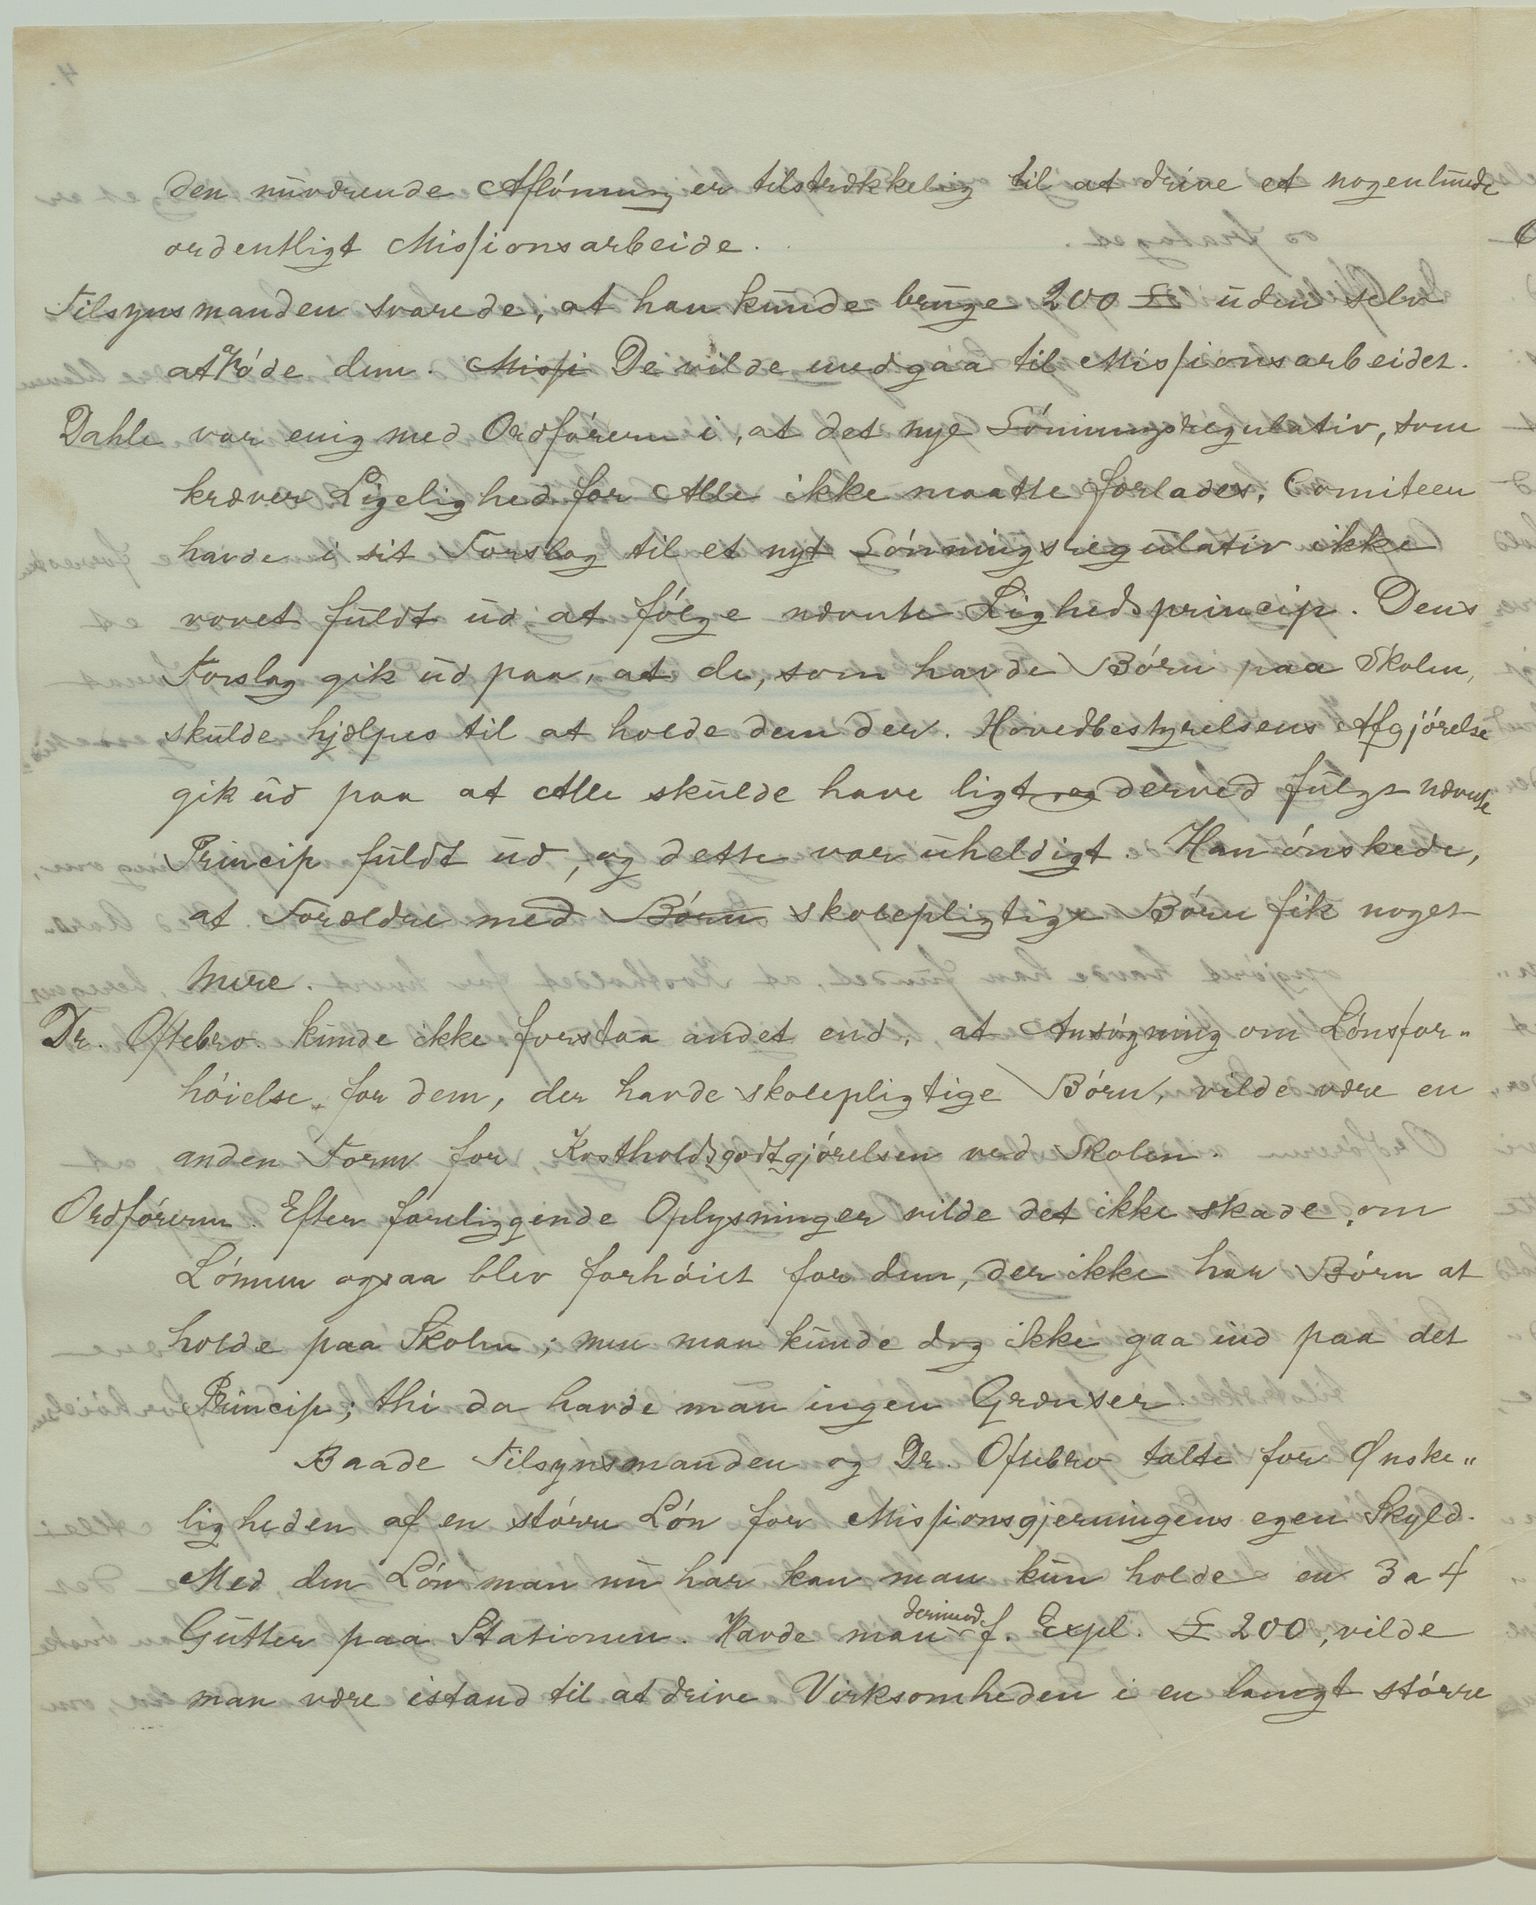 den nuværende Aflónning er tilstrækkelig til at drive et nogenlunde
ordentligt Missionsarbeide.
Tilsynsmanden svarede, at han kunde bruge 200 £ uden selv
at øde dem. Missi De vilde medgaa til Missionsarbeidet.
Dahle var enig med Ordfóreren i, at det nye Lónningsregulativ, som
kræver Ligelighed for Alle ikke maatte forlades. Comiteen
havde i sit Forslag til et nyt Lónningsregulativ ikke
vovet fuldt ud at fólge nævnte Lighedsprincip. Dens
Forslag gik ud paa, at de, som havde Bórn paa Skolen,
skulde hjælpes til at holde dem der. Hovedbestyrelsens Afgjórelse
gik ud paa at Alle skulde have ligt og derved fulgt nævnte
Princip fuldt ud, og dette var uheldigt. Han ónskede,
at Forældre med Bórn skolepligtige Bórn fik noget
mere.
Dr. Oftebro. kunde ikke forstaa andet end, at Ansógning om Lónsfor„
hóielse for dem, der havde skolepligtige Bórn, vilde være en
anden Form for Kostholdsgodtgjórelsen ved Skolen.
Ordfóreren. Efter foreliggende Oplysninger vilde det ikke skade, om
Lónnen ogsaa blev forhóiet for dem, der ikke har Bórn at
holde paa Skolen; men man kunde dog ikke gaa ind paa det
Princip; thi da havde man ingen Grænser.
Baade Tilsynsmanden og Dr. Oftebro talte for Ønske„
ligheden af en stórre Lón for Missionsgjerningens egen Skyld.
Med den Lón man nu har kan man kun holde en 3 a 4
Gutter paa Stationen. Havde man derimod f. Expl. £ 200, vilde
man være istand til at drive Virksomheden i en langt stórre